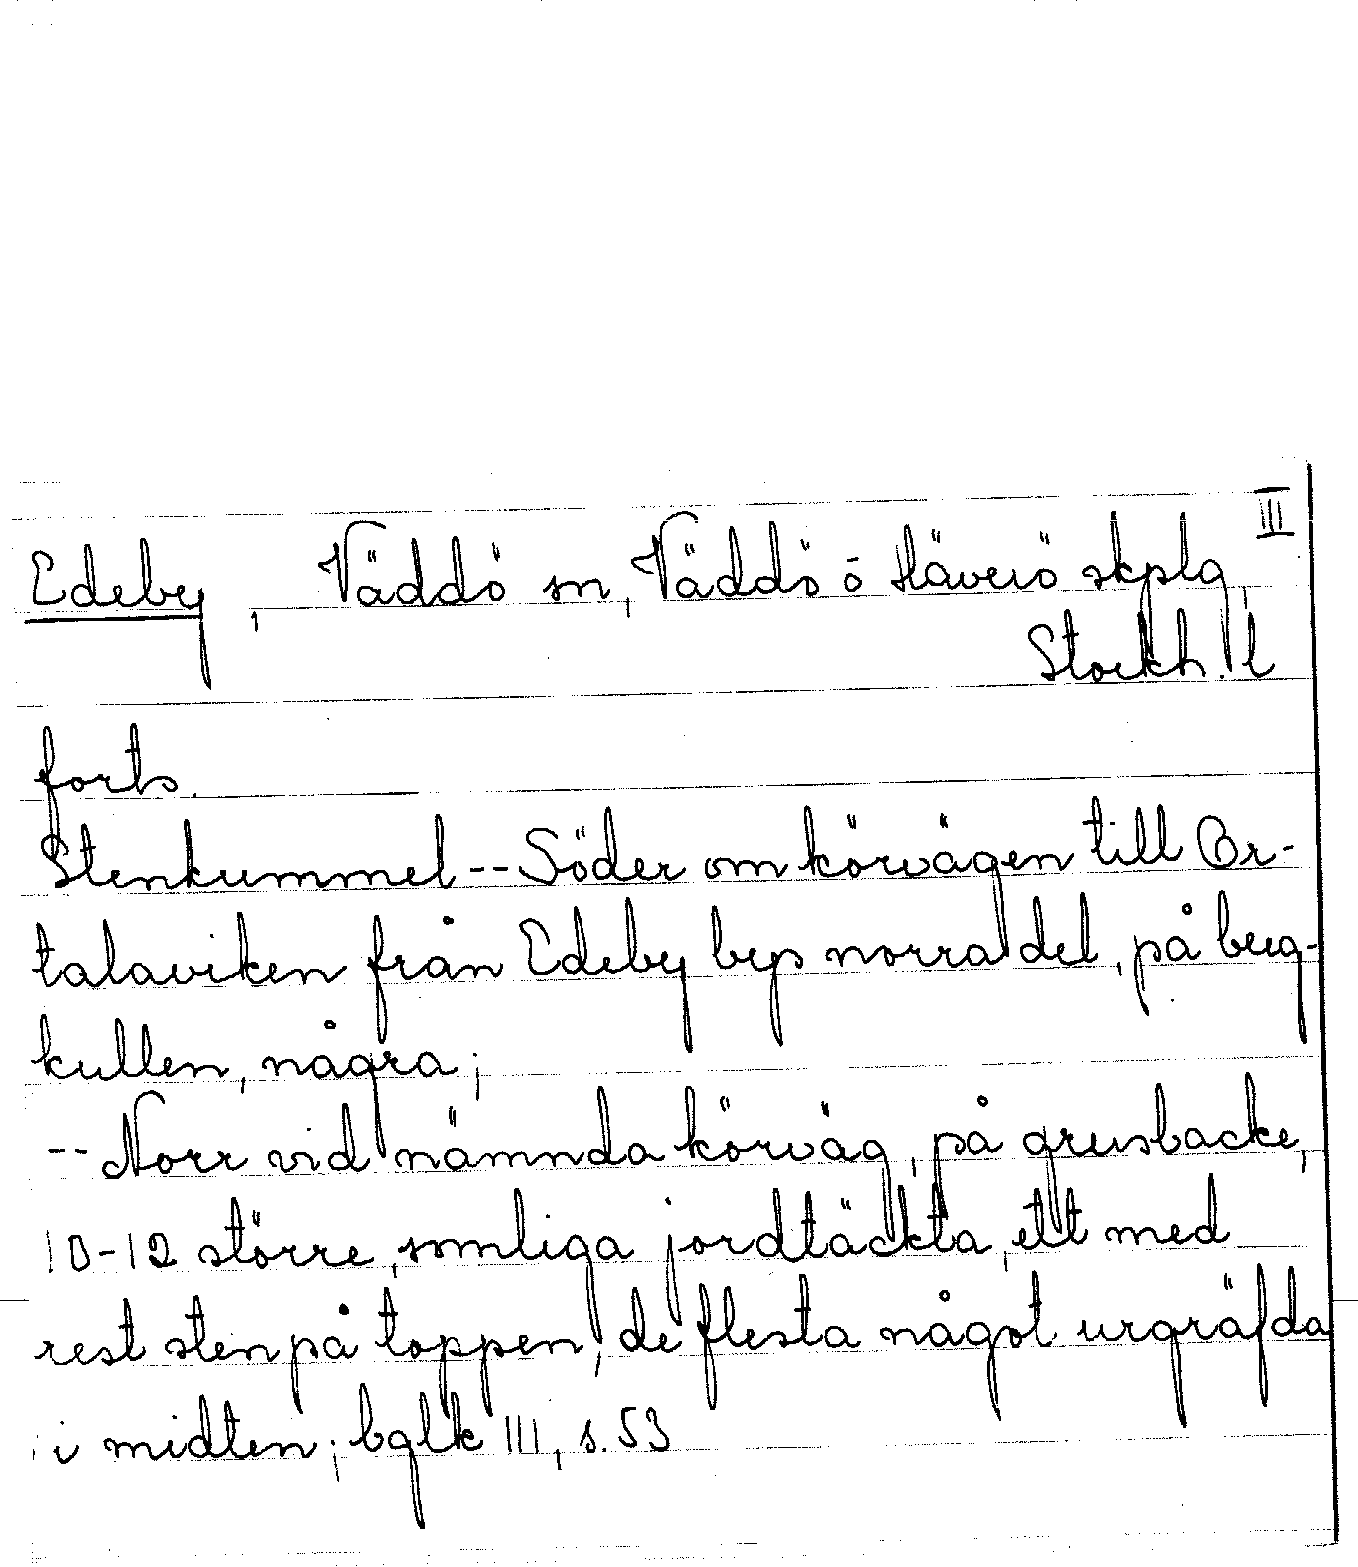 III
Edeby, Väddö sn, Väddö ō Häverö skplg,
Stockh. l
forts.
Stenkummel -- Söder om körvägen till Or-
talaviken från Edeby bys norra del, på berg-
kullen, några;
-- Norr vid nämnda körväg, på grusbacke,
10-12 större, somliga jordtäckta, ett med
rest sten på toppen, de flesta något urgräfda
i midten; bglk III, s. 53